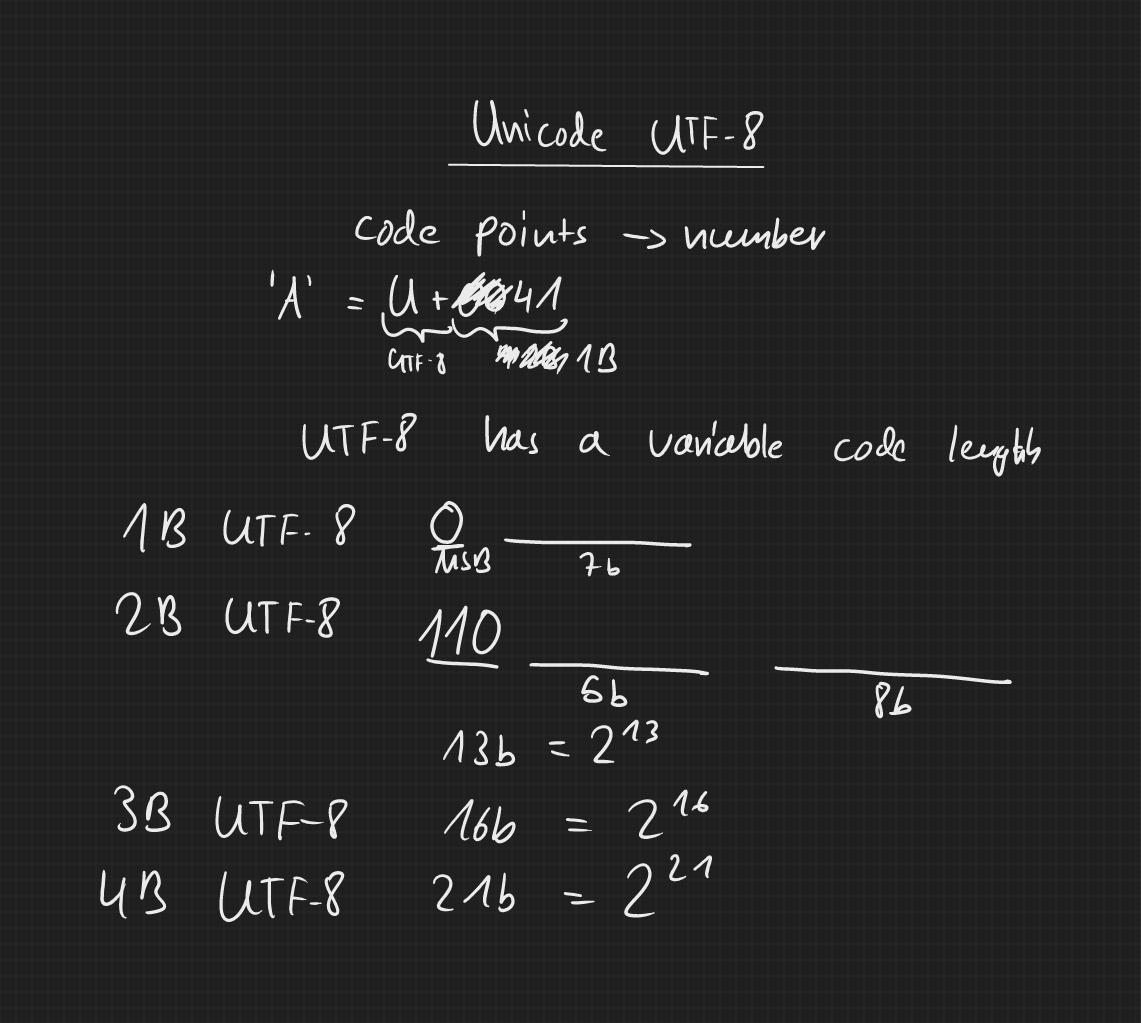 Unicode UTF-8
code points → number
'A' = U+41
UTF-8 1B
UTF-8 has a variable code length
1B UTF-8 0
MSB 7b
2B UTF-8 110
5b 8b
13b = 2^13
3B UTF-8 16b = 2^16
4B UTF-8 21b = 2^21